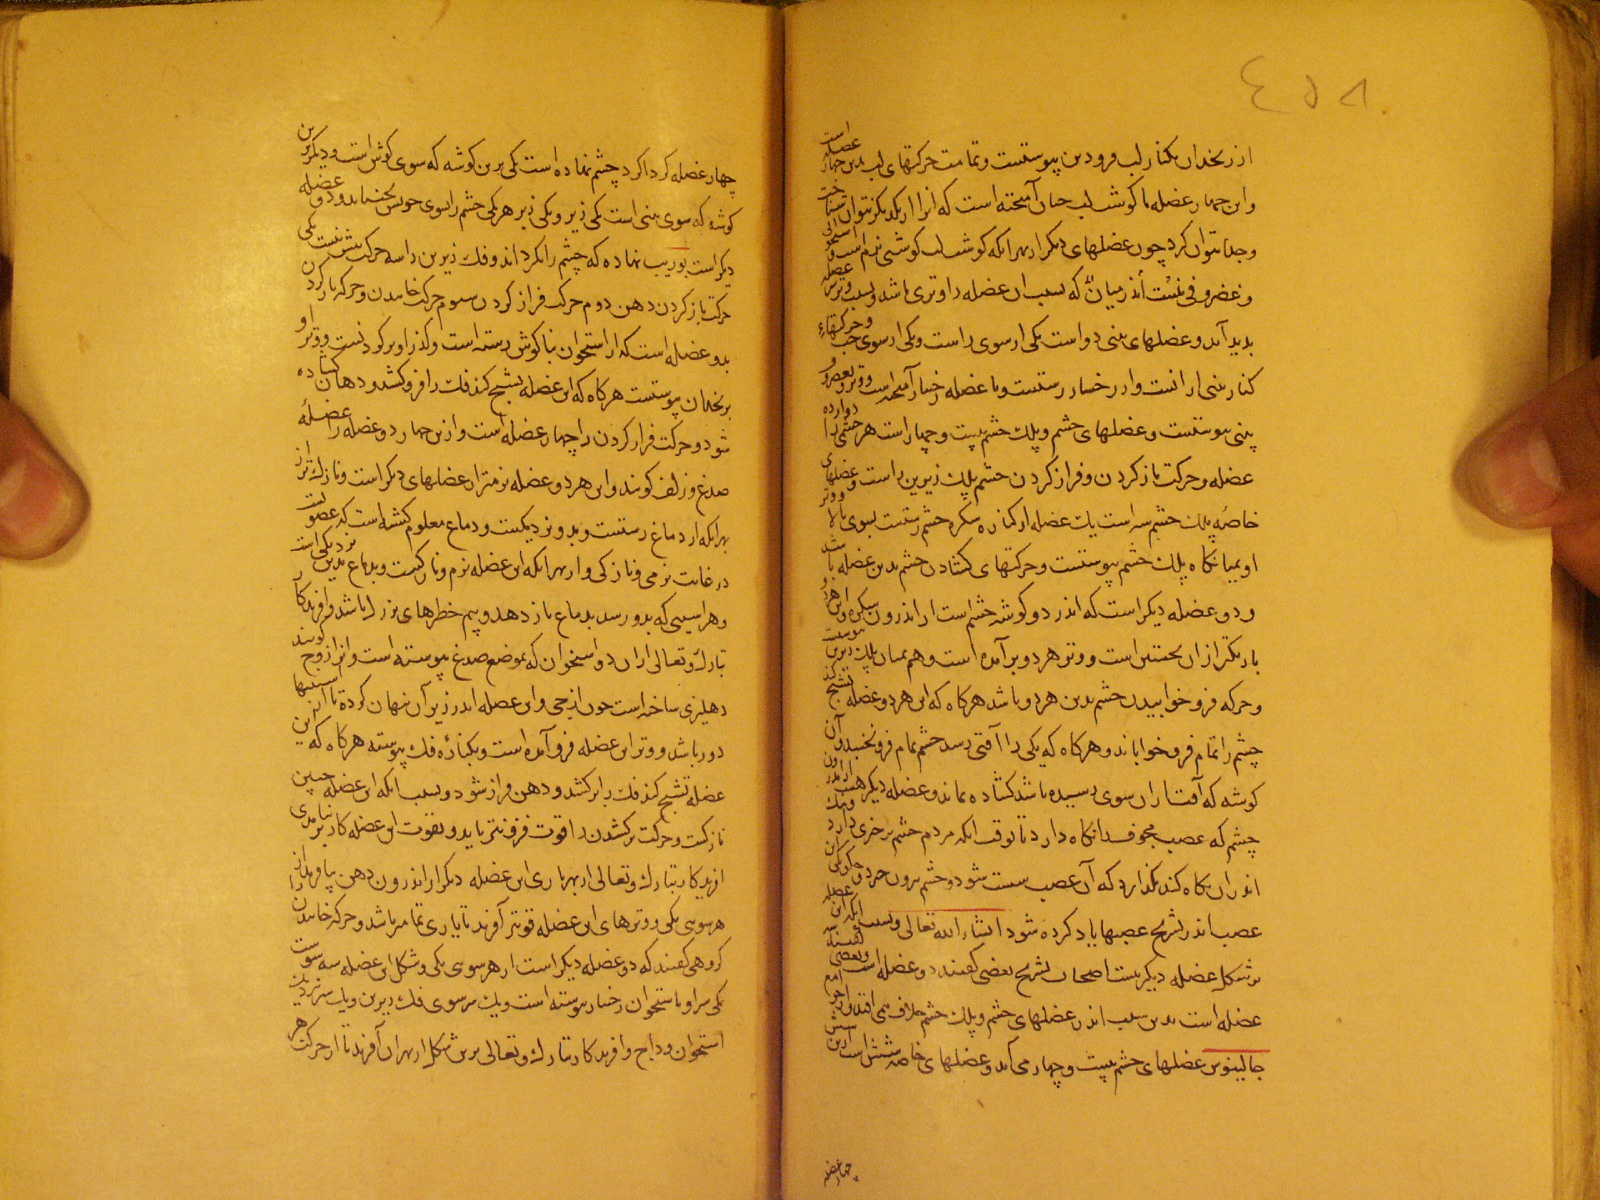 ٤٥٨
از زنخدان بکنار لب فرودین پیوستست و تمامت حرکتهای لب بدین چهار عضله است
و این چهار عضله با گوشت لب چنان آمیخته است که آنرا از یکدیگر نتوان شناخت
و جدا نتوان کرد چون عضلهای دیگر از بهر آنکه گوشت لب گوشتی نرم است و استخوانی
و غضروفی نیست اندر میان که بسبب آن عضله را وتری باشد و بسبب وتر عضله
پدید آید و عضلهای بینی دو است یکی از سوی راست و یکی از سوی چپ و حرکتهاء
کنار بینی از آنست و از رخسار رستست و با عضله رخسار آمیخته است و وتر و بغضروف
بینی پیوستست و عضلهای چشم و پلک چشم بیست و چهار است هر چشمی را دوازده
عضله و حرکت باز کردن و فراز کردن چشم پلک زیرین راست و عضلهای
خاصه پلک چشم سه است یک عضله از کناره سکره چشم رستست بسوی بالا و وتر
او بمیانگاه پلک چشم پیوستست و حرکتهای گشادن چشم بدین عضله باشد
و دو عضله دیگر است که اندر دو گوشه چشم است از اندرون سکره و این هر دو
باریکتر از آن نخستین است و وتر هر دو برآمده است و هم بمیان پلک زیرین پیوستست
و حرکه فرو خوابیدن چشم بدین هر دو باشد هرگاه که این هر دو عضله تشنج کند
چشم را تمام فرو خواباند و هرگاه که یکی را آفتی رسد چشم تمام فرو نخسبد و آن
گوشه که آفت از آن سوی رسیده باشد گشاده بماند و عضله دیگر هست اندرون
چشم که عصب مجوف را نگاه دارد تا بوقت آنکه مردم چشم بر خیزی دارد و نیک
اندر آن نگاه کند نگذارد که آن عصب سست شود و چشم بیرون خیزد و چگونگی این
عصب اندر تشریح عصبها یاد کرده شود انشاء الله تعالی و بسبب آنکه این عضله
بر شکل عضله دیگر نیست اصحاب تشریح بعضی گفتند دو عضله است و بعضی گفتند سه
عضله است بدین سبب اندر عضلهای چشم و پلک چشم خلاف می افتد و بر
جالینوس عضلهای چشم بیست و چهار می آید و عضلهای خاصه شش است ازین شش
چهار عضله
چهار عضله گرداگرد چشم نهاده است یکی برین گوشه که سوی گوش است و دیگر برین
گوشه که سوی بینی است یکی زیر و یکی زبر هر یکی چشم را سوی خویش بجنباند و دو عضله
دیگر است بوریب نهاده که چشم را بگرداند و فک زیرین را سه حرکت بیش نیست یکی
حرکت باز کردن دهن دوم حرکت فراز کردن سوم حرکت خاییدن و حرکه باز کردن
بدو عضله است که از استخوان بناگوش رسته است و گذر او بر گردنست و وتر او
بزنخدان پیوستست هرگاه که این عضله تشنج کند فک را فرو کشد و دهان گشاده
شود و حرکت فراز کردن را چهار عضله است و ازین چهار دو عضله را عضله
صدغ و زلف گویند و این هر دو عضله نرمتر از عضلهای دیگر است و نازک تر از
بهر آنکه از دماغ رستست و بدو نزدیکست و دماغ معلوم گشته است که عضویست
در غایت نرمی و نازکی و از بهر آنکه این عضله نرم و نازکست و بدماغ بدین نزدیکی است
و هر آسیبی که بدو رسد بدماغ باز دهد و بیم خطرهای بزرگ باشد و آفریدگار
تبارک و تعالی از آن دو استخوان که بموضع صدغ پیوسته است و آنرا زوج گویند
دهلیزی ساخته است چون ازجی و این عضله اندر زیر آن پنهان کرده تا از آسیبها
دور باشد و وتر این عضله فرو آمده است و بکناره فک پیوسته هرگاه که این
عضله تشنج کند فک را بر کشد و دهن فراز شود و بسبب آنکه این عضله چنین
نازکست و حرکت بر کشیدن را قوت فزونتر باید و بقوت این عضله کار بر نیامدی
آفریدگار تبارک و تعالی از بهر یاری این عضله دیگر از اندرون دهن بیافرید از
هر سوی یکی و وترهای این عضله قوی تر آفرید تا یاری تمامتر باشد و حرکه خاییدن را
گروهی گفتند که دو عضله دیگر است از هر سوی یکی و شکل این عضله سه سوست
یکی سر او با ستخوان رخسار پیوسته است و یک سر سوی فک زیرین و یک سر نزدیک
استخوان وداج و آفریدگار تبارک و تعالی برین شکل از بهر آن آفرید تا از حرکت هر